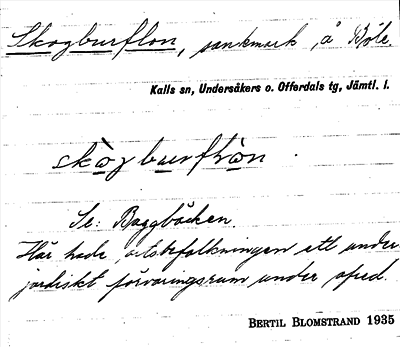 Skogburflon, sankmark, å Böle.
Kalls sn, Undersåkers o. Offerdals tg, Jämtl. l.
skògburflòn.
Se: Baggbäcken.
Här hade ortsbefolkningen ett under-
jordiskt förvaringsrum under ofred.
BERTIL BLOMSTRAND 1935